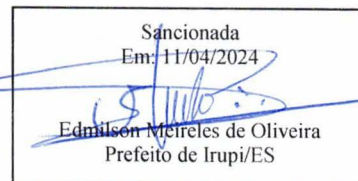 Sancionada
Em: 11/04/2024
Edmilson Meireles de Oliveira
Prefeito de Irupi/ES